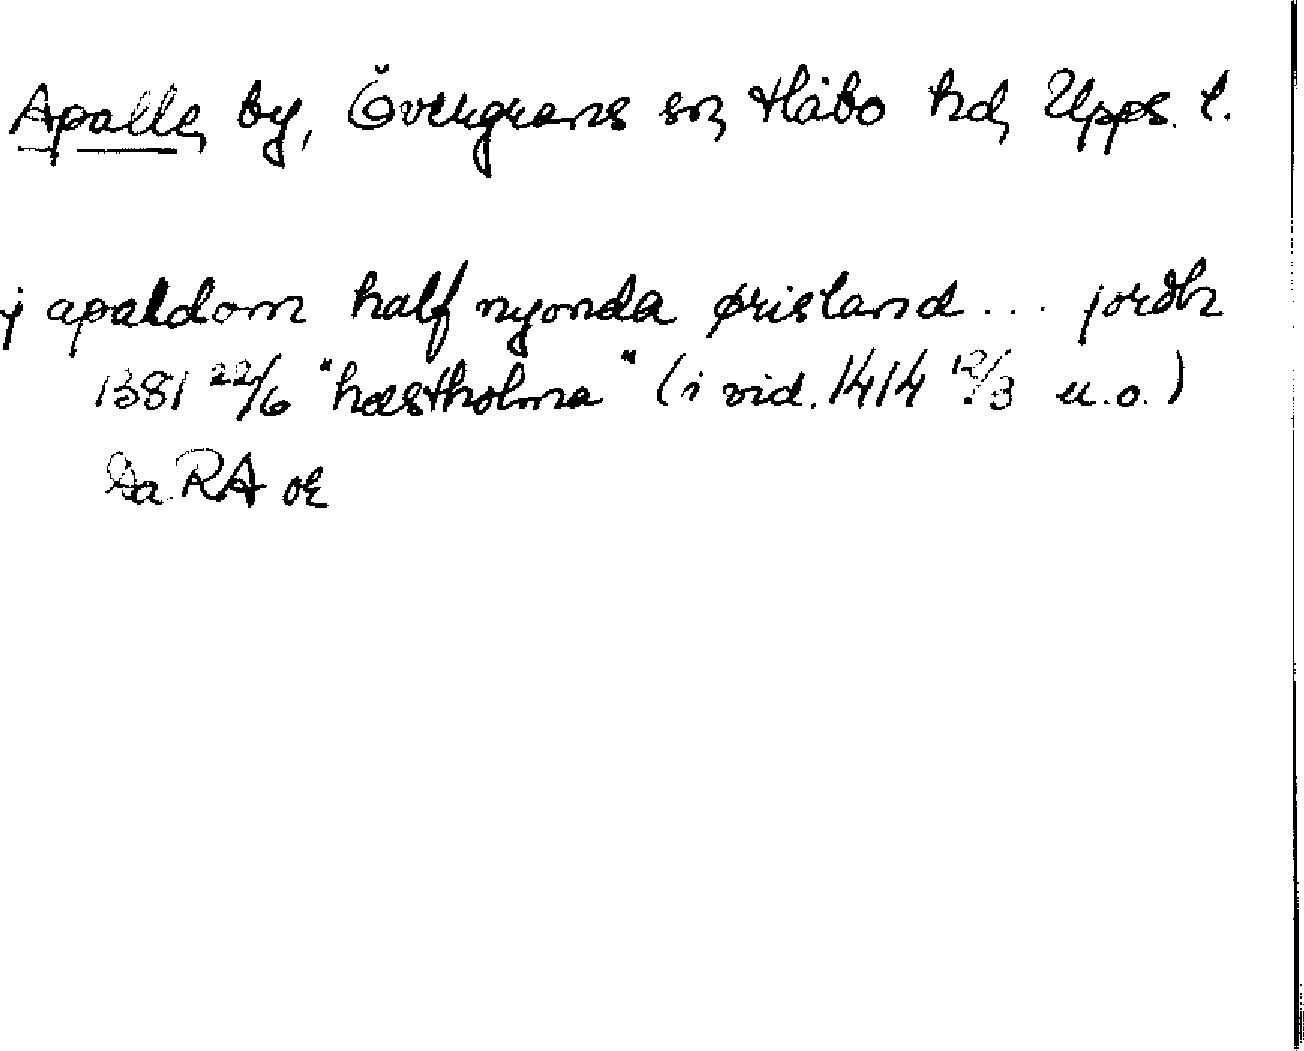 Apalle, by, Övergrans sn, Håbo hd, Upps. l.
j apaldom half nyonda ørisland ... jordh
1381 22/6 "hæstholma" (i vid. 1414 12/3 u.o.)
Da. RA or